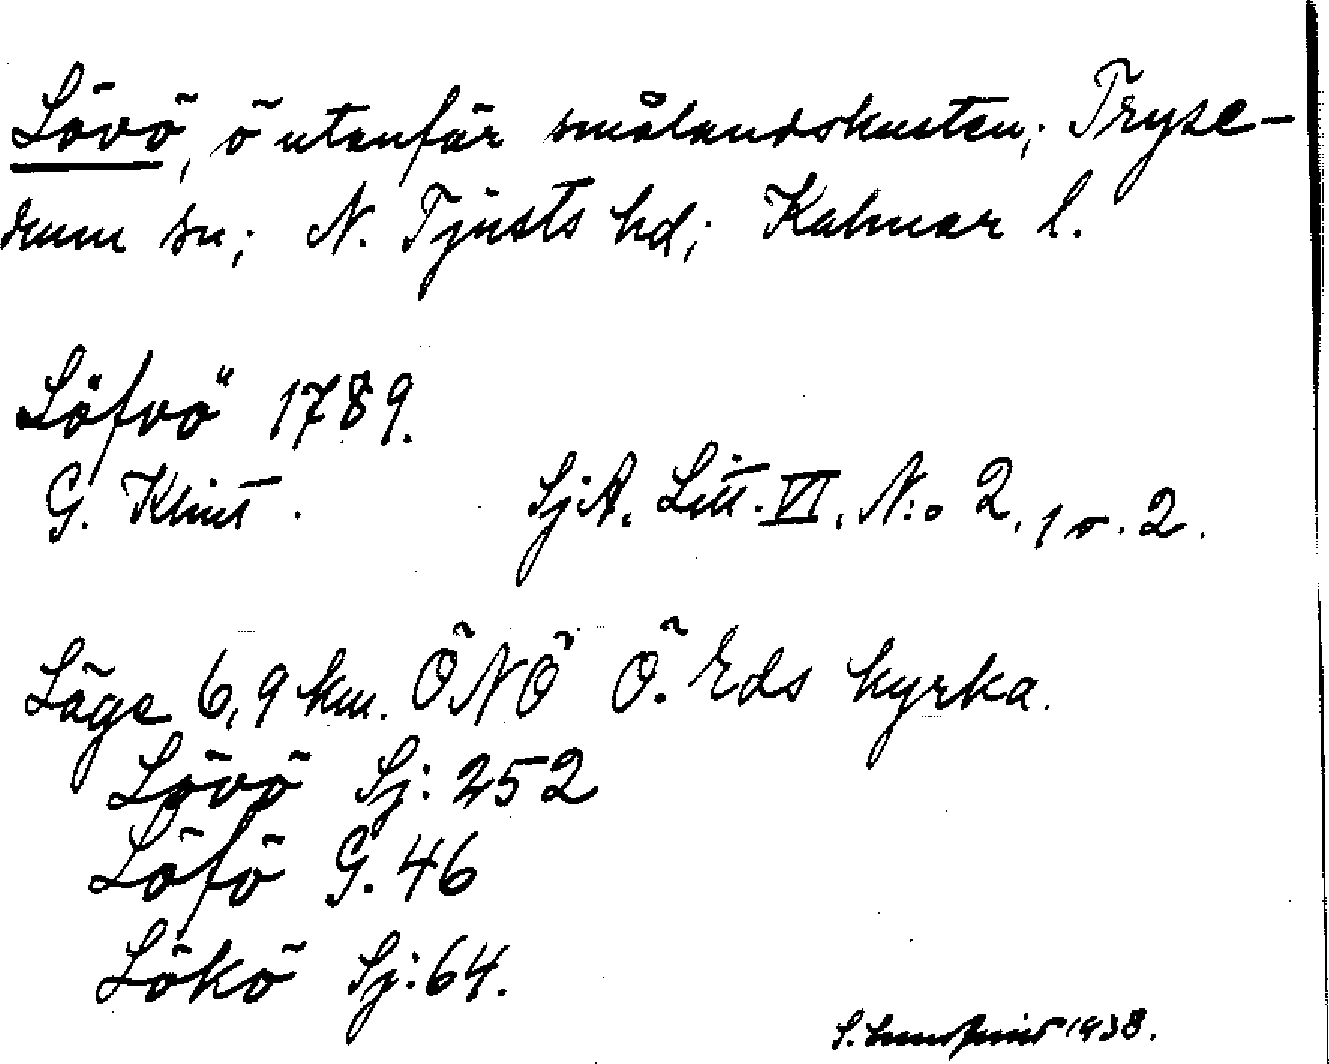 Lövö, ö utanför smålandskusten; Tryse-
rum sn; N. Tjusts hd; Kalmar l.
Löfvö 1789.
G. Klint. SjA. Litt. VI. N:o 2, 1 o. 2.
Läge 6,9 km. ÖNÖ Ö. Eds kyrka.
Lövö Sj: 252
Löfö G. 46
Lökö Sj: 64.
S. 1938.